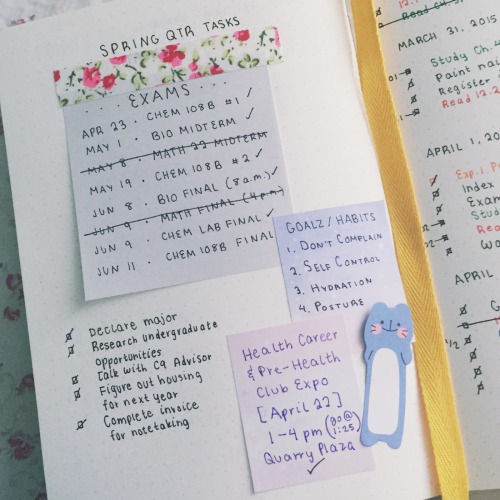 SPRING QTR TASKS
· · · EXAMS · · ·
APR 23 · CHEM 108B #1 ✓
MAY 1 · BIO MIDTERM ✓
MAY 8 · MATH 22 MIDTERM
MAY 19 · CHEM 108B #2 ✓
JUN 8 · BIO FINAL (8a.m.) ✓
JUN 9 · MATH FINAL (4p.m)
JUN 9 · CHEM LAB FINAL ✓
JUN 11 · CHEM 108B FINAL
GOALZ / HABITS
1. DON'T COMPLAIN
2. SELF CONTROL
3. HYDRATION
4. POSTURE
Declare major
Research undergraduate
opportunities
Talk with C9 Advisor
Figure out housing
for next year
Complete invoice
for notetaking
Health Career
& Pre-Health
Club Expo
[April 22]
1-4 pm (go @ 1:25)
Quarry Plaza
✓
MARCH 31, 2015
Study Ch.
Paint nai
Register
Read 12.2
APRIL 1, 20
Exp. 1
Index
Exam
Stu
Rea
Wa
APRIL